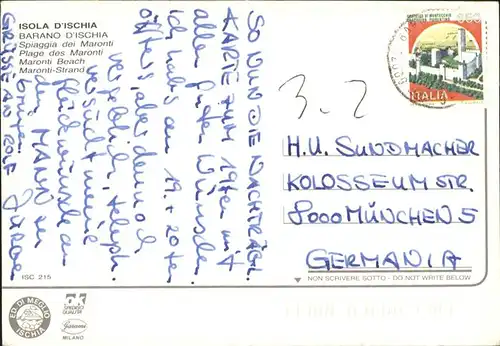 ISOLA D'ISCHIA
BARANO D'ISCHIA
Spiaggia dei Maronti
Plage des Maronti
Maronti Beach
Maronti-Strand
SO NUN DIE NACHTRÄGL.
KARTE ZUM 19ten mit
allen guten Wünschen
ich habs am 19. + 20ten
öfters, aber dennoch
vergeblich, teleph.
versucht meine
Glückwünsche an
den MANN zu
bringen.
GRÜSSE AN
3.2
H.U. SUNDMACHER
KOLOSSEUM STR.
8000 MÜNCHEN 5
GERMANIA
ITALIA
ISC 215
NON SCRIVERE SOTTO - DO NOT WRITE BELOW
ED. DI MEGLIO
ISCHIA
MILANO